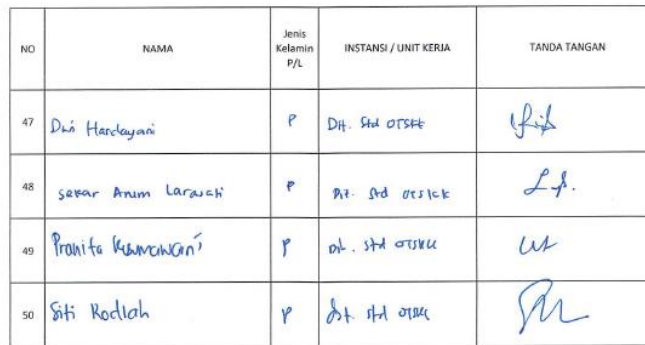 NO NAMA Jenis Kelamin P/L INSTANSI / UNIT KERJA TANDA TANGAN
47 Dwi Handayani P Dit. Std OTSKK
48 Sekar Anum Larasati P Dit. Std OTSKK
49 Pranita P Dit. Std OTSKK
50 Siti Rodiah P Dit. Std OTSKK